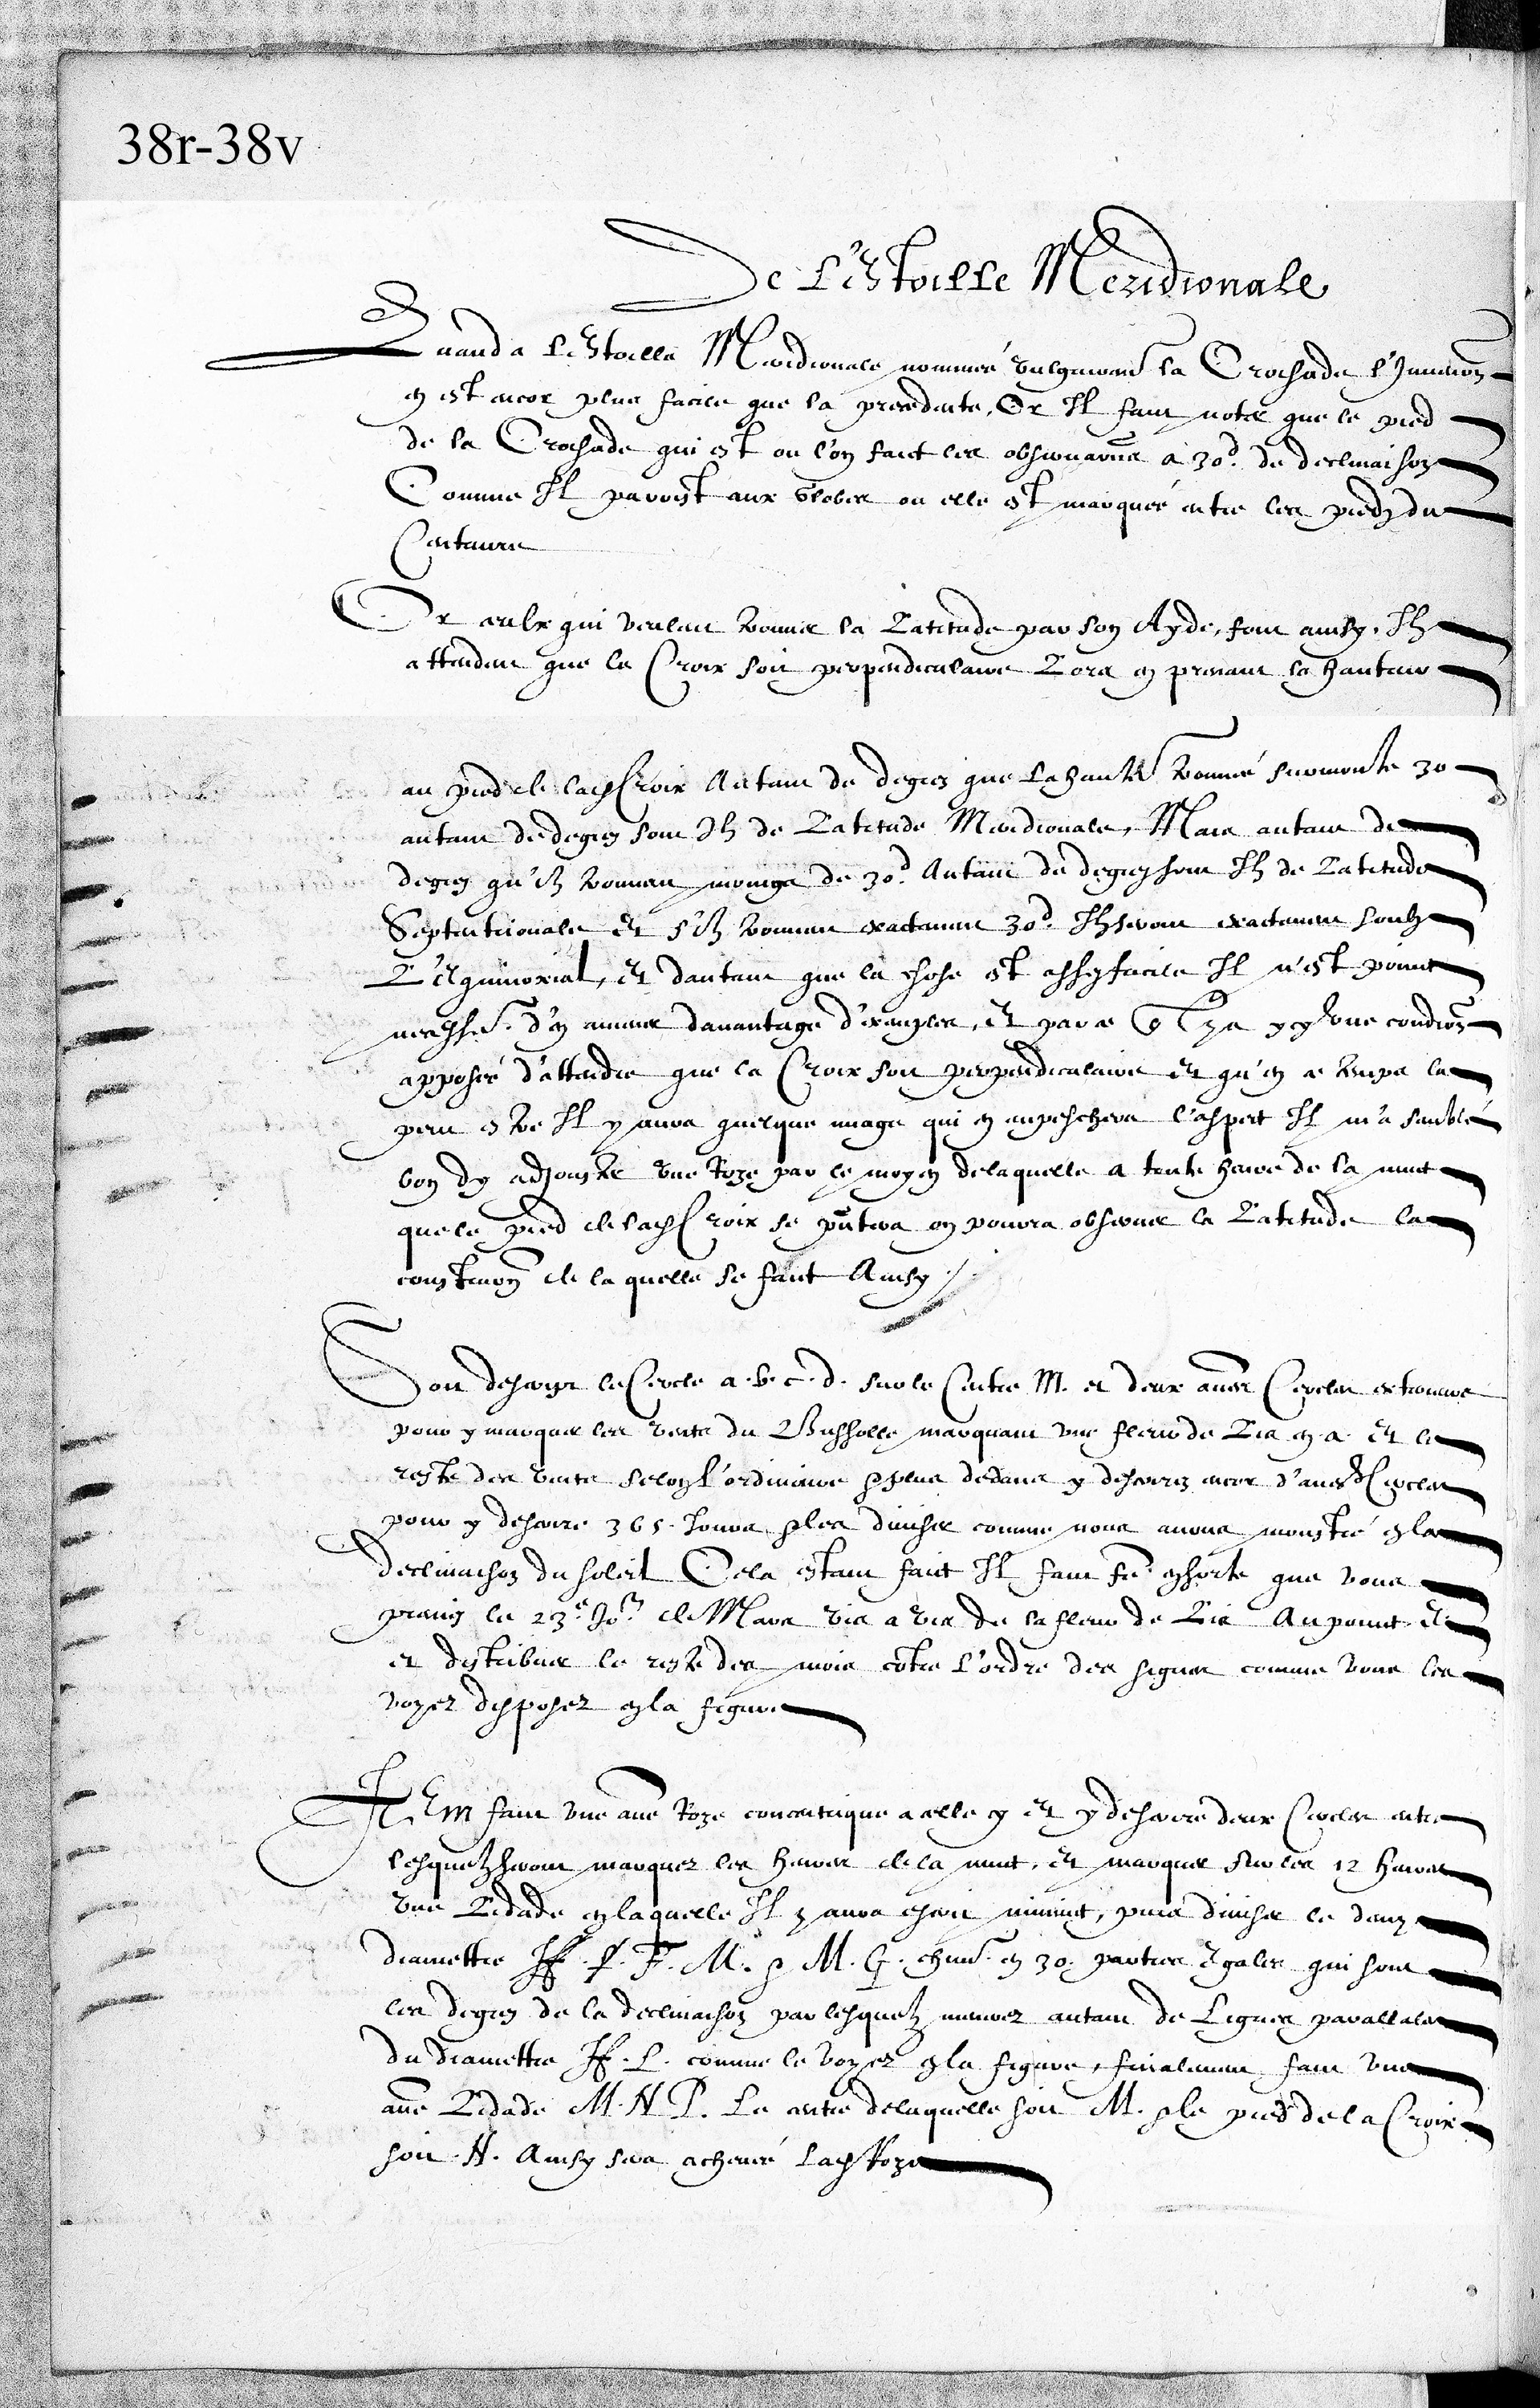 38r-38v
De L'Estoille Meridionale
Quand a L'Estoille Meridionale nommée vulgairemt la Crosade l'Invention
en est encor plus facile que la precedente, Or Il faut noter que le pied
de la Crosade qui est ou l'on faict les observations a 30d. de declinaison
Comme Il paroist aux Globes ou elle est marquée entre les piedz du
Centaure
Or ceulx qui veulent trouver la Latitude par son Ayde, font ainsy. Ilz
attendent que la Croix soit perpendiculaire Lors en prenant la hauteur
au pied de la Croix Autant de degrez que la haultr trouvée surmonte 30
autant de degrez sont Ilz de Latitude Meridionale, Mais autant de
degrez qu'ilz trouvent moings de 30d. Autant de degrez sont Ilz de Latitude
Septentrionale Et s'ilz trouvent exactement 30d. Ilz seront exactement soubz
L'Equinoxial, Et dautant que la chose est assez facile Il n'est point
necessre. d'en amener davantage d'exemples, Et par ce qu'Il y a icy une condion
apposée d'attendre que la Croix soit perpendiculaire Et qu'en ce temps la
peut estre Il y aura quelque nuage qui en empeschera l'aspect Il m'a semblé
bon dy adjouster une Roze par le moyen de laquelle a toute heure de la nuit
que le pied de la Croix se pntera on pourra observer la Latitude la
constmon de laquelle se faict Ainsy ./.
Soit descript le Cercle a. b. c. d. sur le Centre M. et deux aues Cercles exterieurs
pour y marquer les vents du Bussolle marquant une fleur de Lis en a. Et le
reste des vents selon l'ordinaire & plus dedans y descrirez encor d'autres Cercles
pour y descrire 365. Jours & les diviser comme nous avons monstré en la
declinaison du soleil Cela estant faict Il faut fe. en sorte que vous
preniez le 23e. Jor. de Mars vis a vis de la fleur de Lis Au point E.
et distribuer le reste des mois cotre l'ordre des signes comme vous les
voyez disposez en la figure
ITEm faut une aue Roze concentrique a elle cy Et y descrire deux Cercles entre
lesquelz seront marquez les heures de la nuit, Et marquer sur les 12 heures
une Lidade en laquelle Il y aura escrit minuit, puis diviser le demy
diamettre F. M. & M. G. chunt. en 30. parties Egales qui sont
les degrez de la declinaison par lesquelz menerez autant de Lignes parallales
du diamettre . L. comme le voyez en la figure, finalement faut une
aue Lidade M. N P. Le centre de laquelle soit M. & le pied de la Croix
soit N. Ainsy sera achevée la Roze